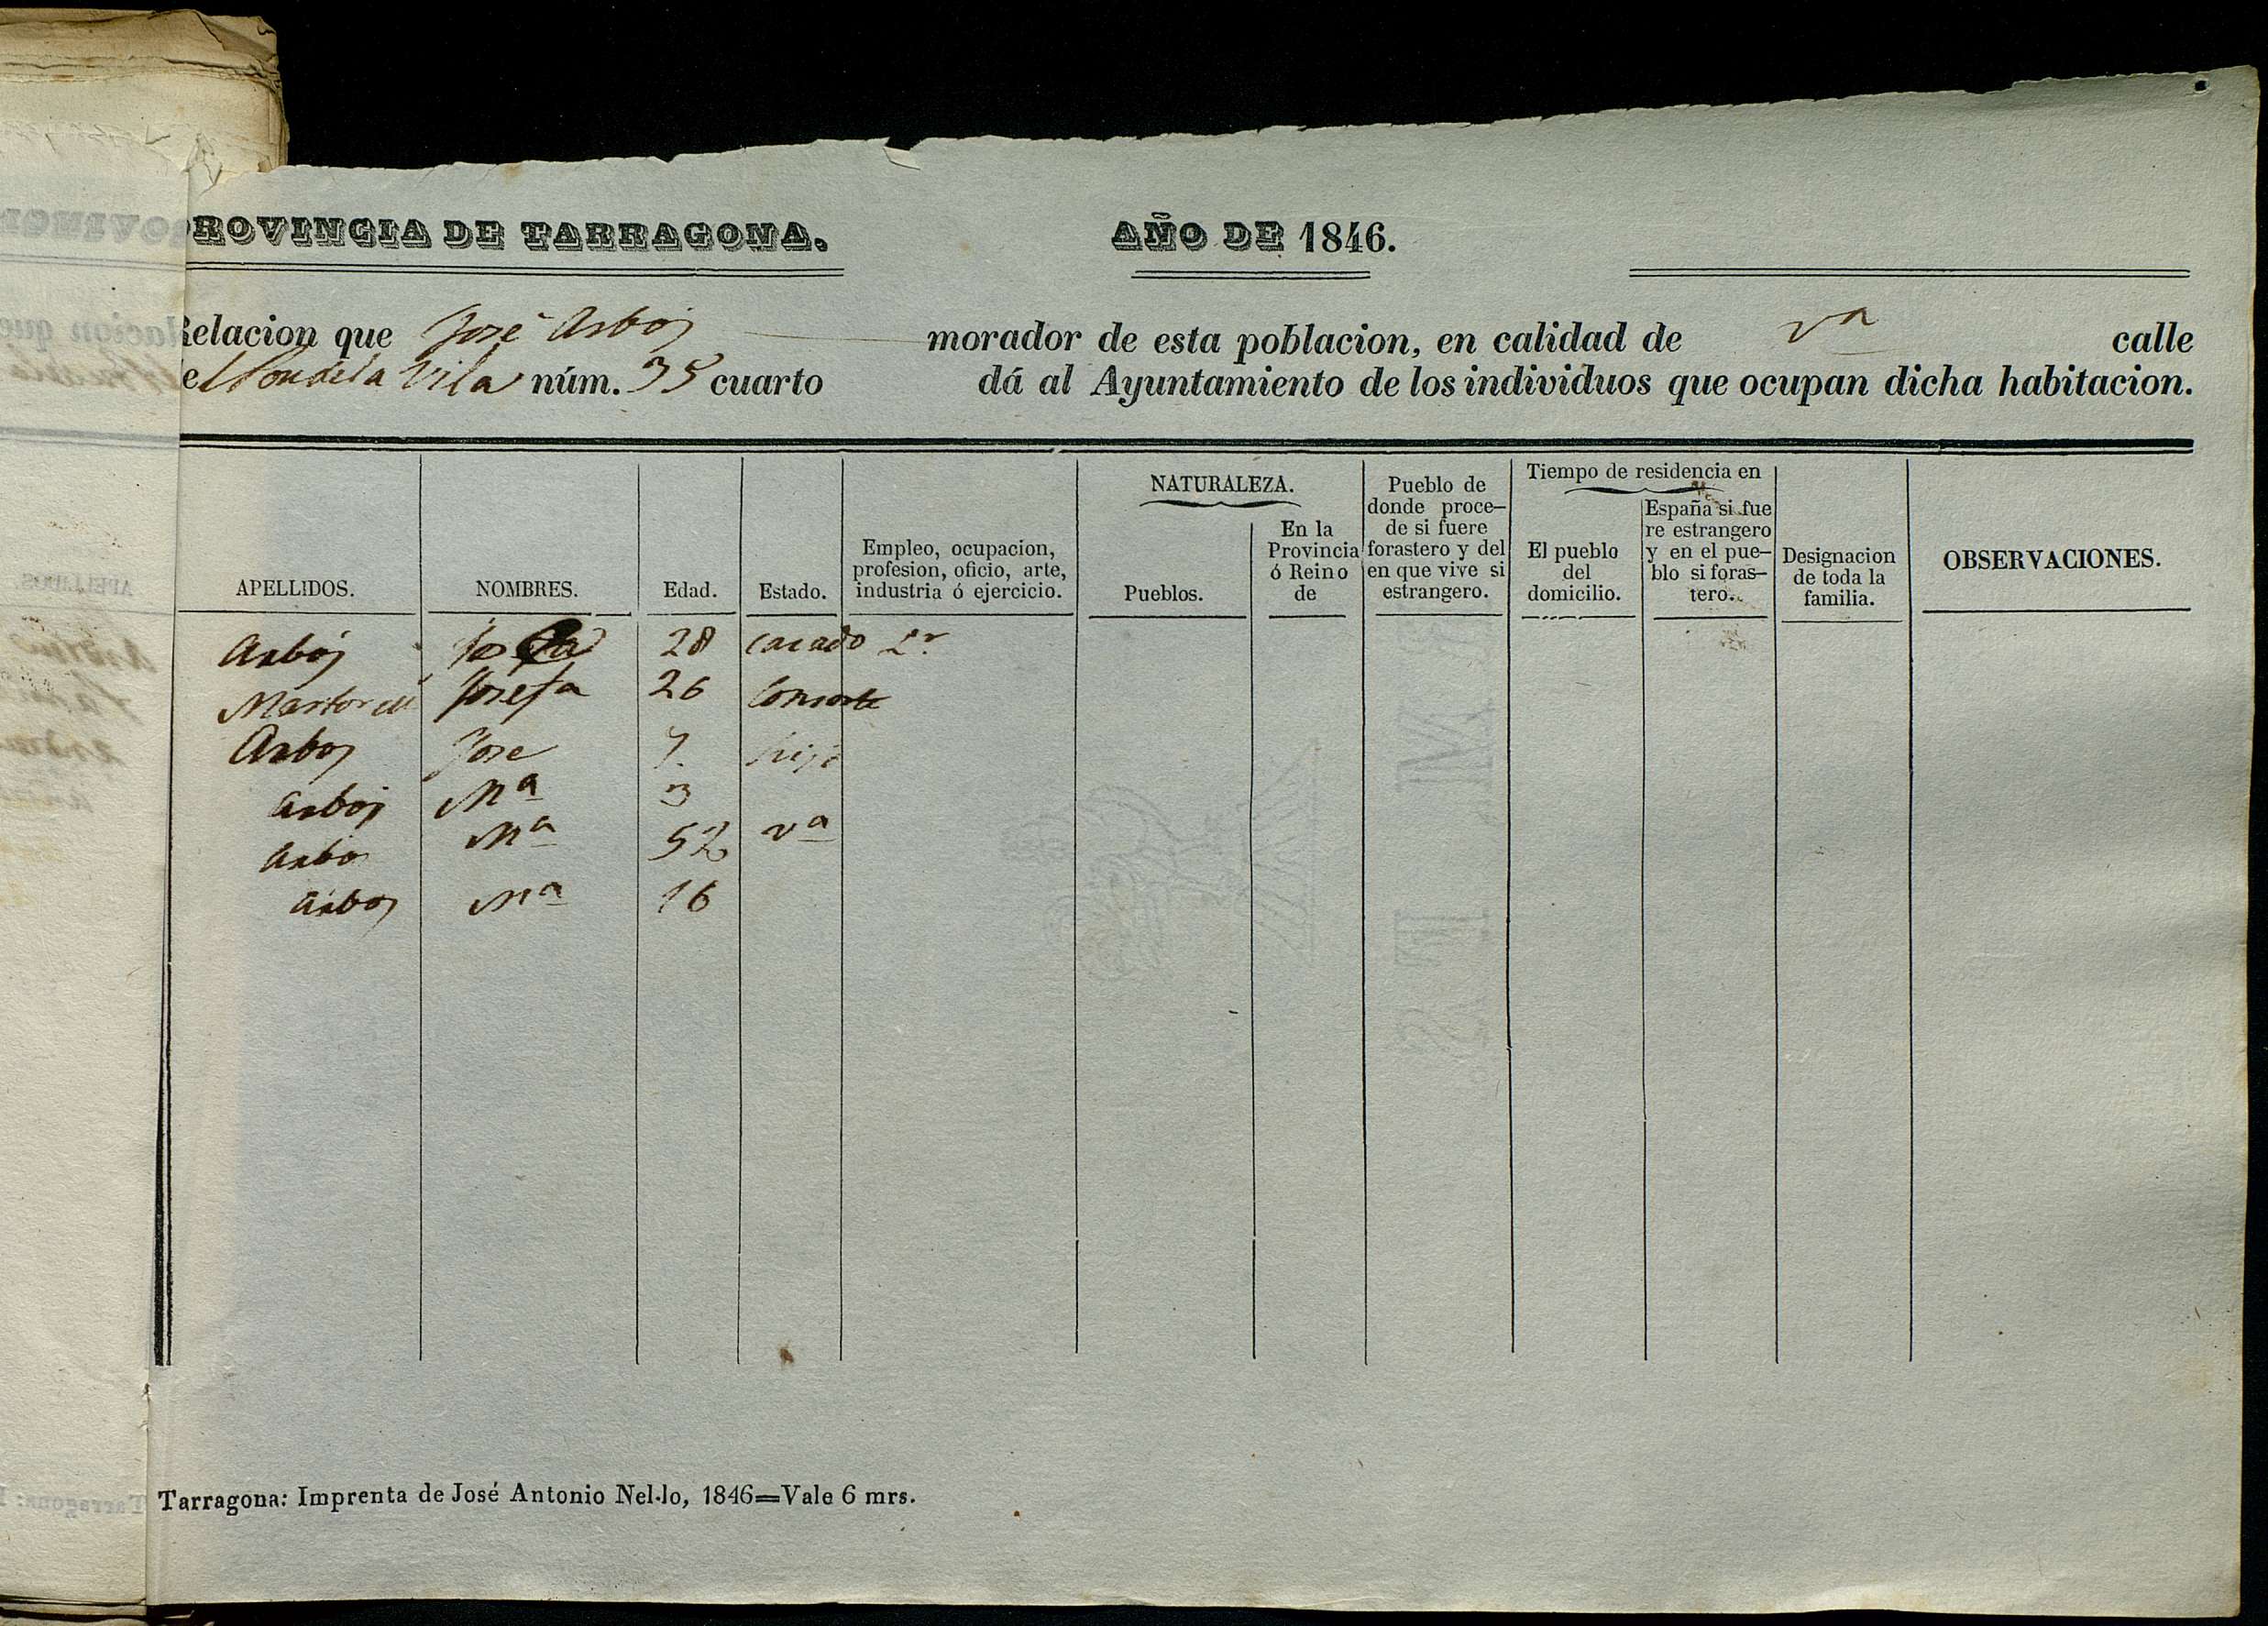 ROVINCIA DE TARRAGONA. AÑO DE 1846.
Relacion que José Arbós morador de esta poblacion, en calidad de va calle
el Pou de la Vila núm. 35 cuarto dá al Ayuntamiento de los individuos que ocupan dicha habitacion.
APELLIDOS. NOMBRES. Edad. Estado. Empleo, ocupacion, profesion, oficio, arte, industria ó ejercicio. NATURALEZA. Pueblos. En la Provincia ó Reino de Pueblo de donde proce- de si fuere forastero y del en que vive si estrangero. Tiempo de residencia en El pueblo del domicilio. España si fue re estrangero y en el pue- blo si foras- tero. Designacion de toda la familia. OBSERVACIONES.
Arbós 28 casado Lr
Martorell Josefa 26 Consorte
Arbos Jose 7 hijo
Arbós Ma 3
Arbo Ma 52 va
Arbos Ma 16
Tarragona: Imprenta de José Antonio Nel·lo, 1846=Vale 6 mrs.